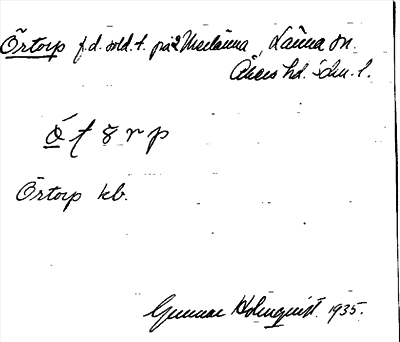 Örtorp f.d. sold.t. på Merlänna, Länna sn.
Åkers hd. Söm. l.
Örtorp kb.
Gunnar Holmquist. 1935.